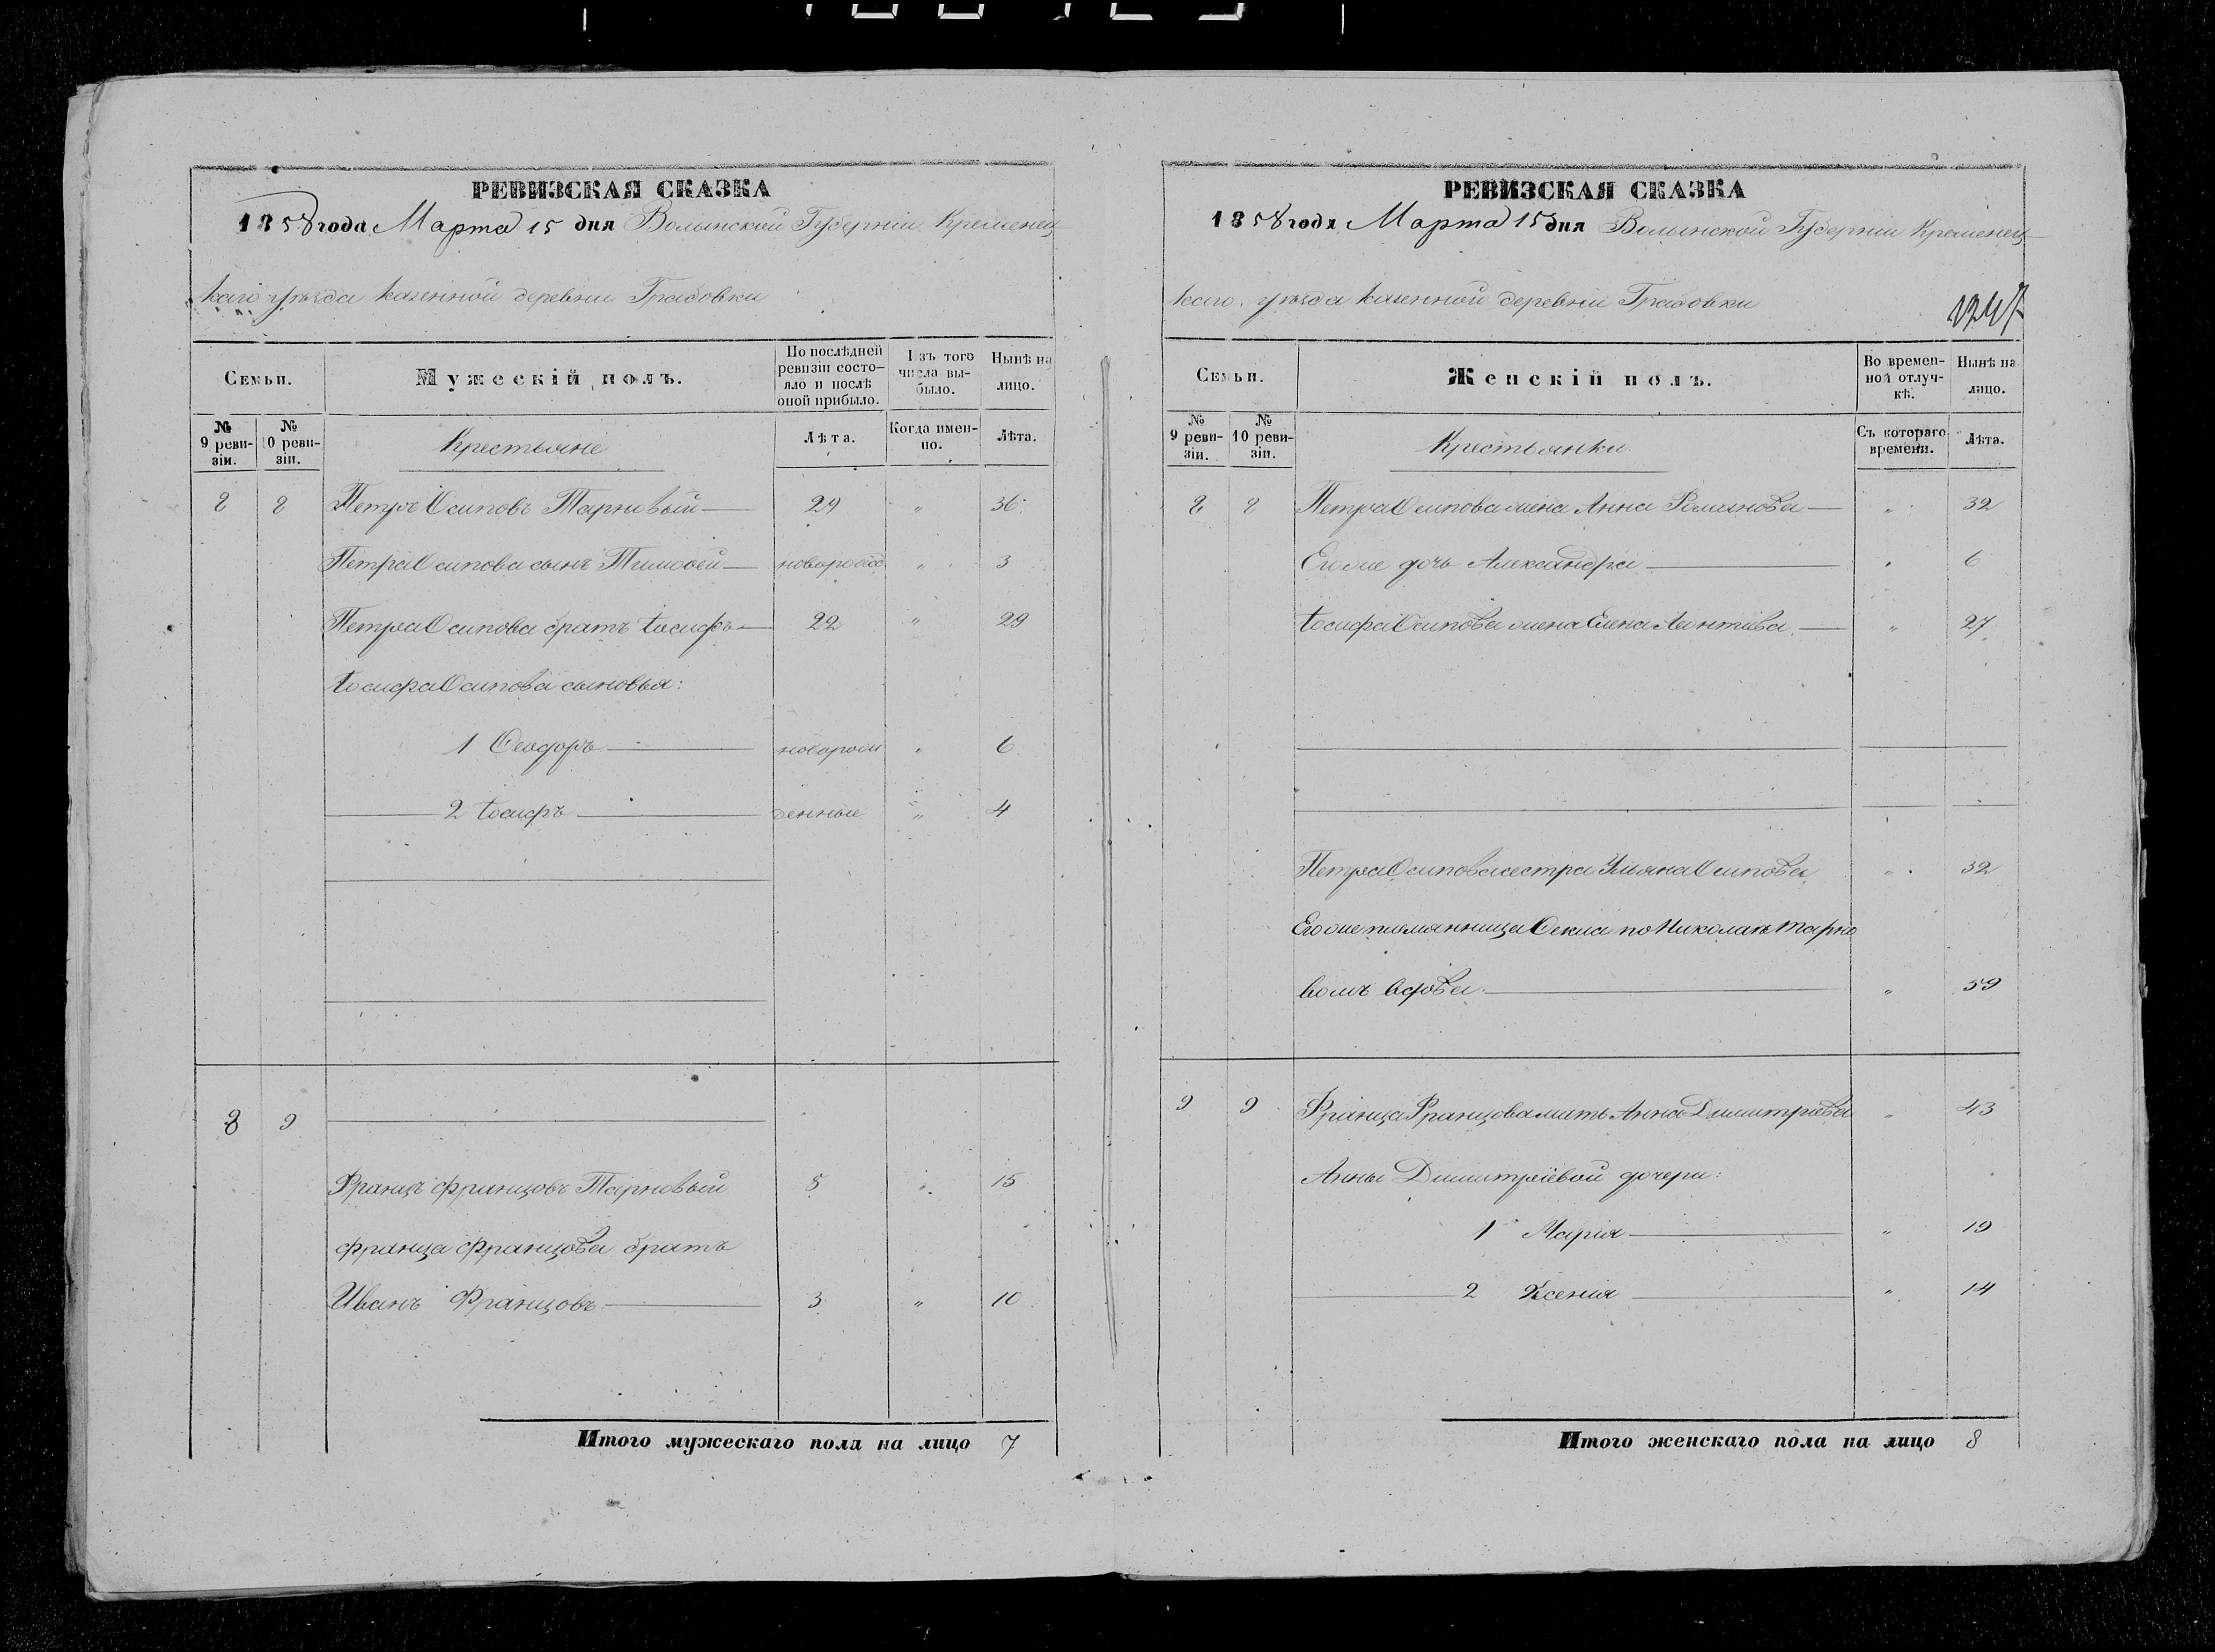 РЕВИЗСКАЯ СКАЗКА
1858 года Марта 15 дня Волынской Губерніи Кременец
каго уѣзда казенной деревни Грабовки
Семьи.
Мужескій полъ.
По послѣдней ревизіи состояло и послѣ оной прибыло.
Изъ того числа выбыло.
Нынѣ на лицо.
№ 9 ревизіи.
№ 10 ревизіи.
Крестьяне
Лѣта.
Когда именно.
Лѣта.
8 8 Петръ Осиповъ Тарновый 29 " 36
Петра Осипова сынъ Тимофей новорожд " 3
Петра Осипова братъ Іосифъ 22 " 29
Іосифа Осипова сыновья:
1 Ѳеодоръ новорож " 6
2 Іосифъ денные " 4
8 9
Францъ Францовъ Тарновый 8 " 15
Франца Францова братъ
Иванъ Францовъ 3 " 10
Итого мужескаго пола на лицо 7
РЕВИЗСКАЯ СКАЗКА
1858 года Марта 15 дня Волынской Губерніи Кременец
каго уѣзда казенной деревни Грабовки
1247
Семьи.
Женскій полъ.
Во временной отлучкѣ.
Нынѣ на лицо.
№ 9 ревизіи.
№ 10 ревизіи.
Крестьянки
Съ котораго времени.
Лѣта.
8 8 Петра Осипова жена Анна Романова " 32
Его же дочь Александра " 6
Іосифа Осипова жена Елена Леонтіева " 27
Петра Осипова сестра Ульяна Осипова " 32
Его же племянница Ѳекла по Николаѣ Тарно
вомъ вдова " 59
9 9 Франца Францова мать Анна Димитріева " 43
Анны Димитріевой дочери:
1 Марія " 19
2 Ксенія " 14
Итого женскаго пола на лицо 8